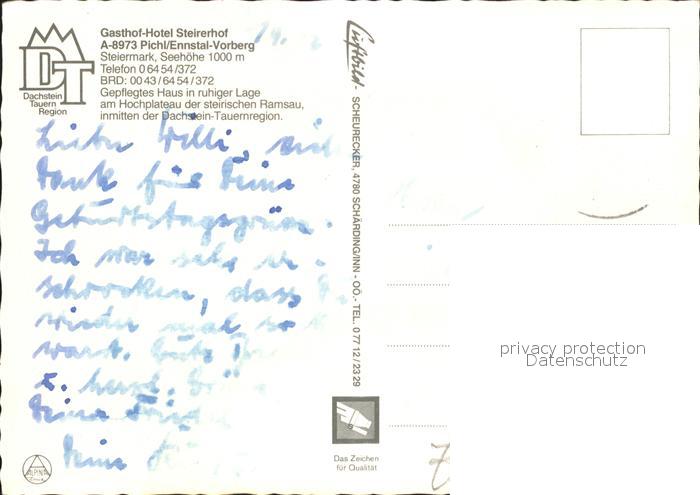 Gasthof-Hotel Steirerhof
A-8973 Pichl/Ennstal-Vorberg
Steiermark, Seehöhe 1000 m
Telefon 0 64 54/372
BRD: 00 43/64 54/372
Gepflegtes Haus in ruhiger Lage
am Hochplateau der steirischen Ramsau,
inmitten der Dachstein-Tauernregion.
DT
Dachstein
Tauern
Region
Lieber Willi,
Dank für Deine
Geburtstagsgrüsse.
Ich war sehr er-
schrocken, dass
wieder mal so
warst. Gute
u. herzl.
Deine
Deine
ALPINA
Luftbild - SCHEURECKER, 4780 SCHÄRDING/INN - OÖ. - TEL. 0 77 12 / 23 29
Das Zeichen
für Qualität
privacy protection
Datenschutz